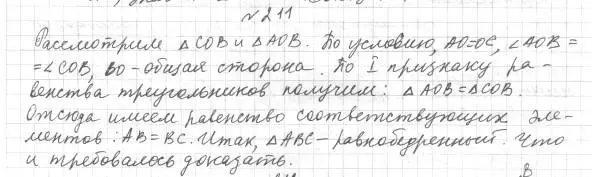 № 211
Рассмотрим △COB и △AOB. По условию, AO=OC, ∠AOB=
=∠COB, BO - общая сторона. По I признаку ра-
венства треугольников получим: △AOB=△COB.
Отсюда имеем равенство соответствующих эле-
ментов: AB=BC. Итак, △ABC - равнобедренный. Что
и требовалось доказать.
B